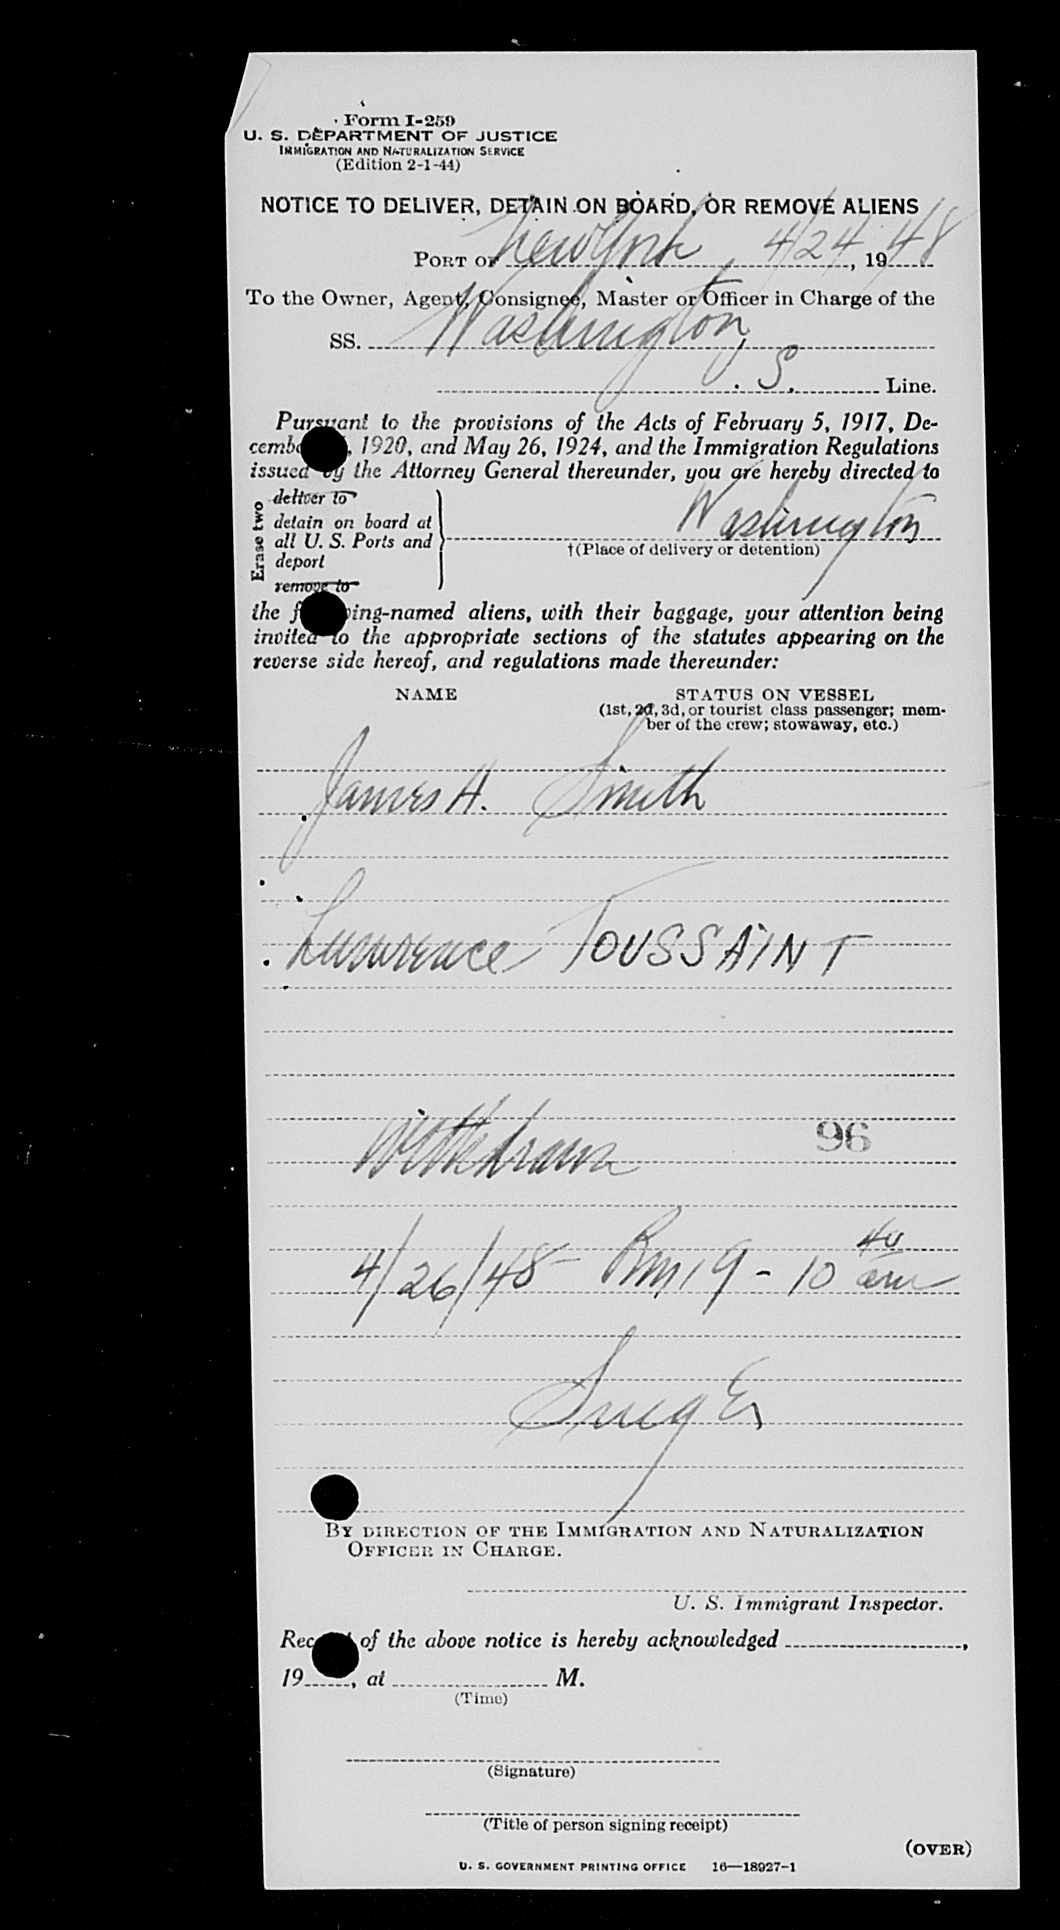 Form I-259
U. S. DEPARTMENT OF JUSTICE
IMMIGRATION AND NATURALIZATION SERVICE
(Edition 2-1-44)
NOTICE TO DELIVER, DETAIN ON BOARD, OR REMOVE ALIENS
PORT OF New York 4/24, 1948
To the Owner, Agent, Consignee, Master or Officer in Charge of the
SS. Washington
U. S. Line.
Pursuant to the provisions of the Acts of February 5, 1917, De-
cember , 1920, and May 26, 1924, and the Immigration Regulations
issued by the Attorney General thereunder, you are hereby directed to
Erase two
deliver to
detain on board at
all U. S. Ports and
deport
remove to
Washington
†(Place of delivery or detention)
the following-named aliens, with their baggage, your attention being
invited to the appropriate sections of the statutes appearing on the
reverse side hereof, and regulations made thereunder:
NAME STATUS ON VESSEL
(1st, 2d, 3d, or tourist class passenger; mem-
ber of the crew; stowaway, etc.)
James H. Smith
Lawrence TOUSSAINT
Withdrawn 96
4/26/48 - Rm 19 - 10 40 am
By direction of the Immigration and Naturalization
Officer in Charge.
U. S. Immigrant Inspector.
Receipt of the above notice is hereby acknowledged ,
19 , at M.
(Time)
(Signature)
(Title of person signing receipt)
(OVER)
U. S. GOVERNMENT PRINTING OFFICE 16—18927-1